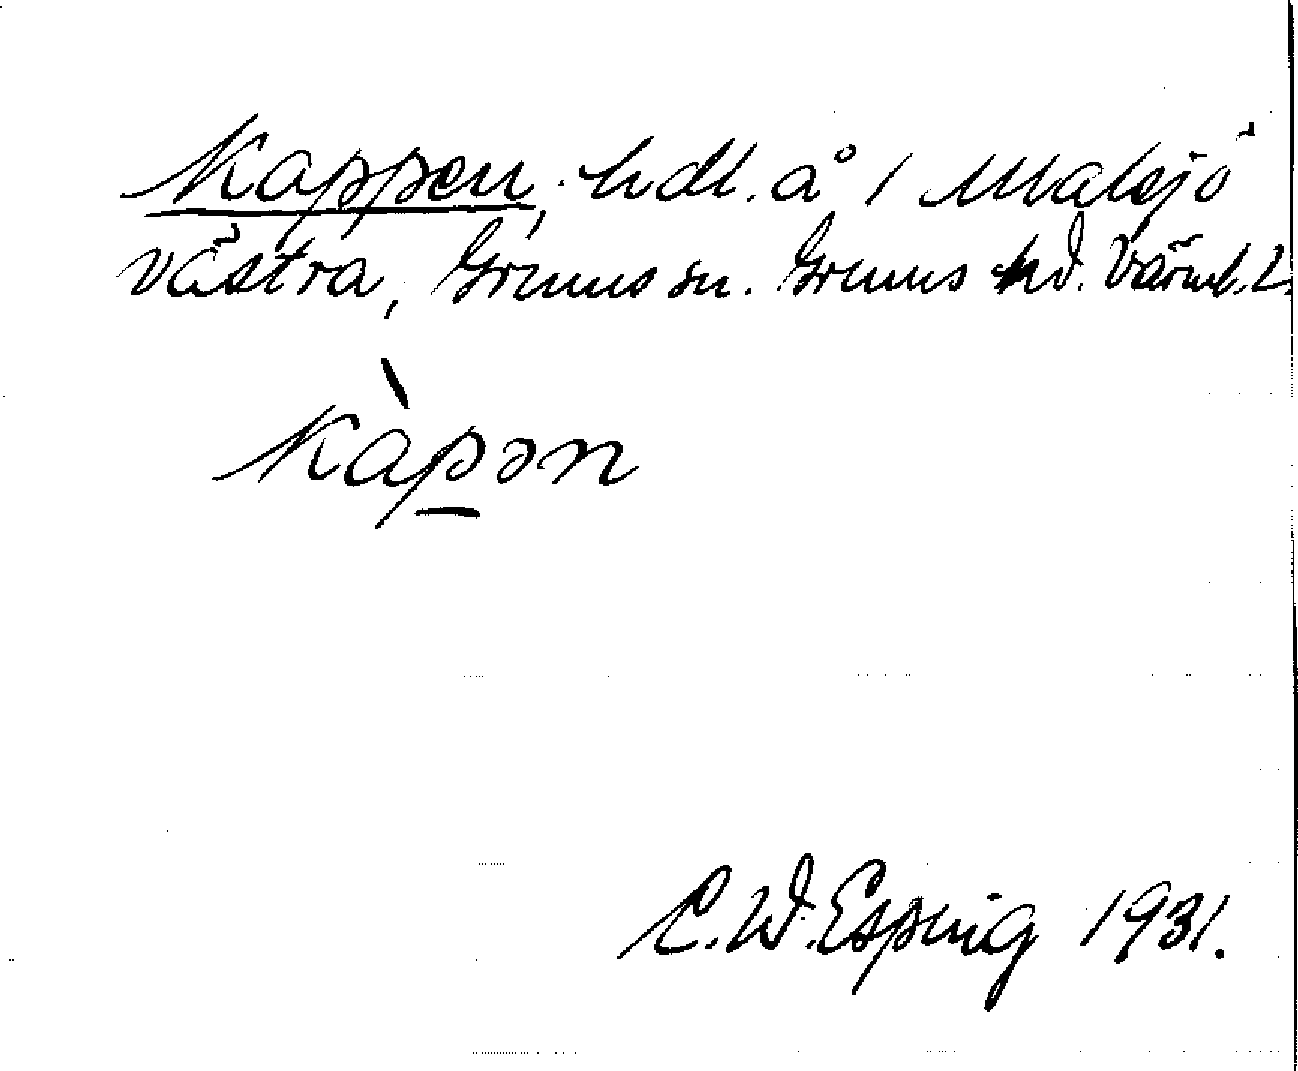 Kappen, hdl. å i Malsjö
västra, Grums sn. Grums hd. Värml. L.
kàpən
C. W. Esping 1931.